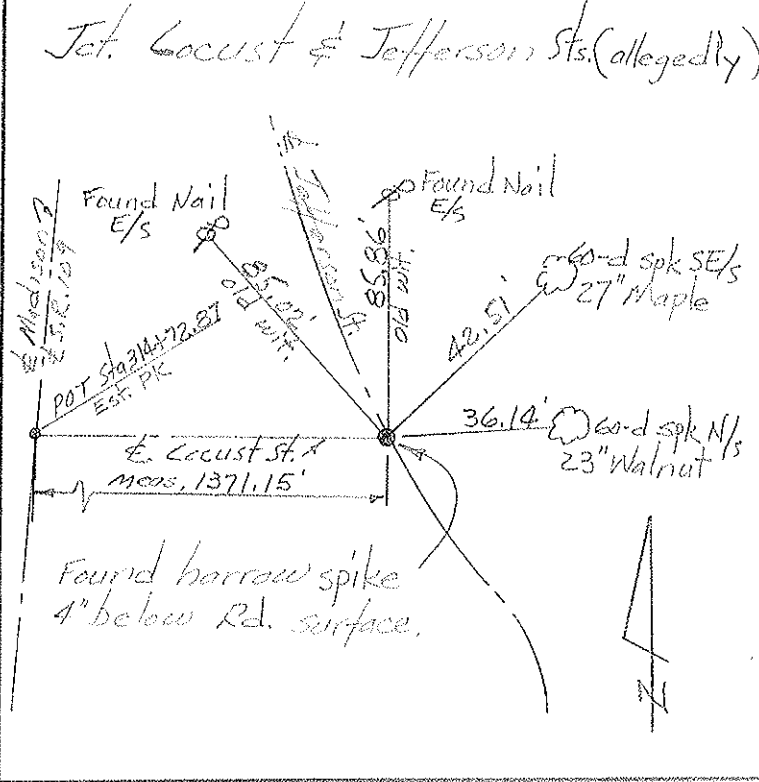 Jct. Locust & Jefferson Sts. (allegedly)
Found Nail
E/s
℄ Jefferson St.
Found Nail
E/s
℄ Madison?
℄ S.R. 109
85.02'
old wit.
85.86'
60-d spk SE/s
27" Maple
42.51'
POT Sta 314+72.87
Est. PK
36.14'
60-d spk N/s
23" Walnut
℄ Locust St.
Meas. 1371.15'
Found harrow spike
4" below Rd. surface.
N